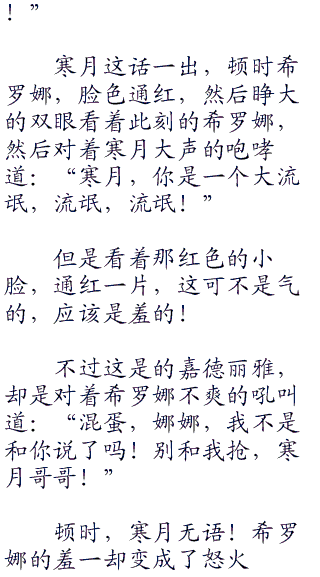 ！”
寒月这话一出，顿时希
罗娜，脸色通红，然后睁大
的双眼看着此刻的希罗娜，
然后对着寒月大声的咆哮
道：“寒月，你是一个大流
氓，流氓，流氓！”
但是看着那红色的小
脸，通红一片，这可不是气
的，应该是羞的！
不过这是的嘉德丽雅，
却是对着希罗娜不爽的吼叫
道：“混蛋，娜娜，我不是
和你说了吗！别和我抢，寒
月哥哥！”
顿时，寒月无语！希罗
娜的羞一却变成了怒火